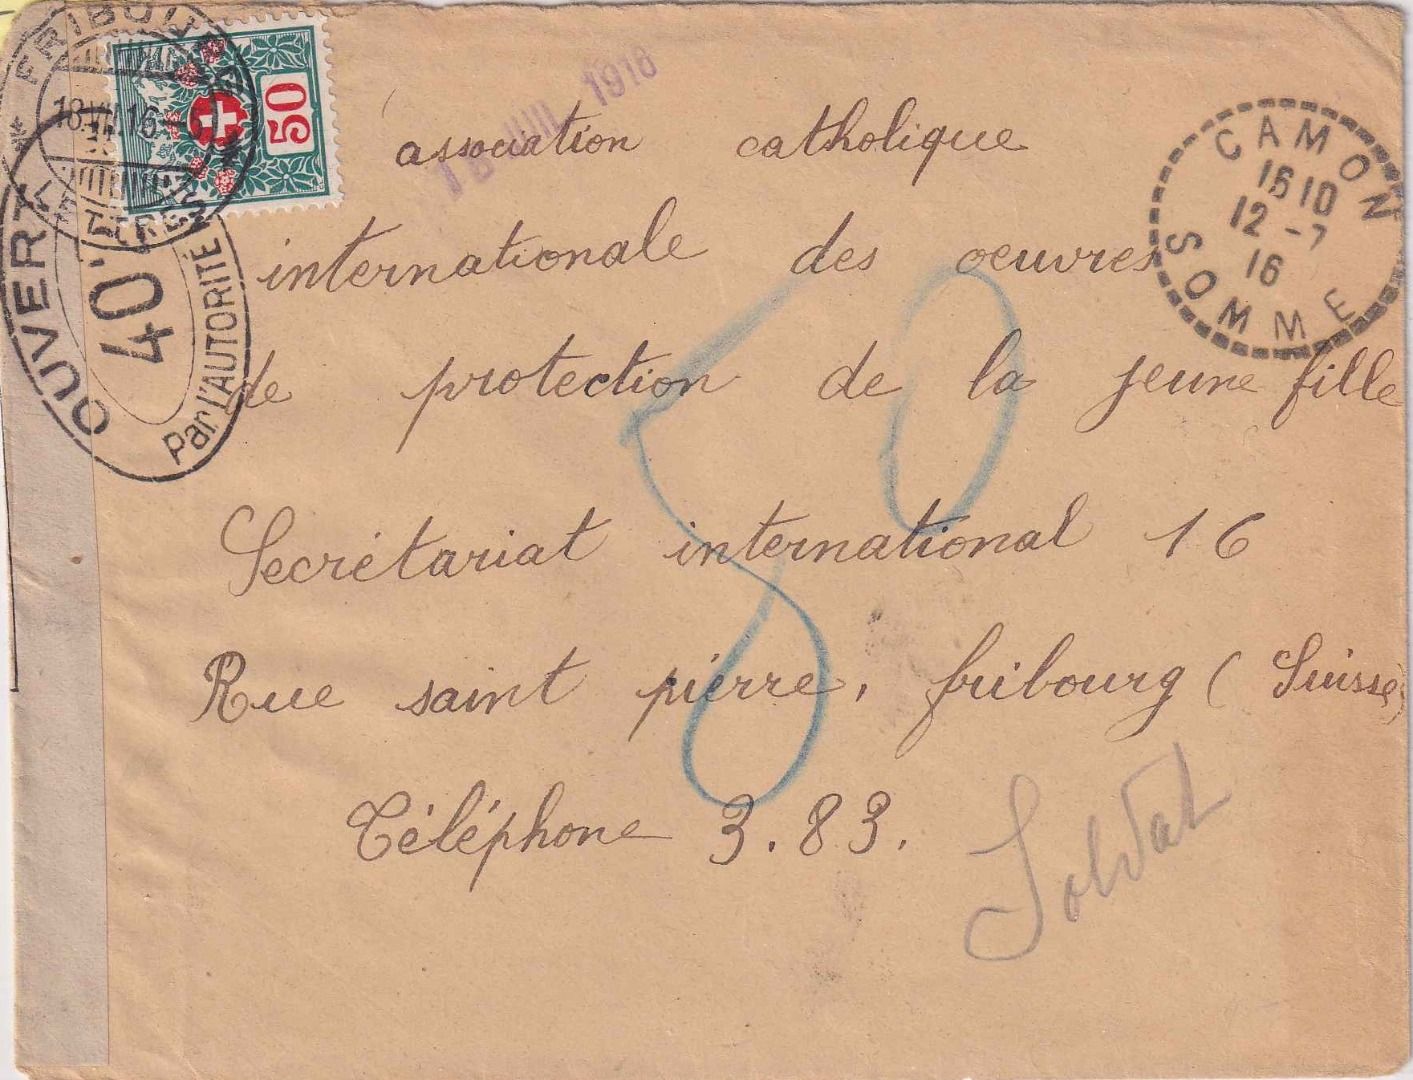 FRIBOURG
18.VII.16
LETTRES
50
18 JUIL 1916
CAMON
16 10
12 - 7
16
SOMME
OUVERT
401
Par L'AUTORITÉ
association catholique
internationale des oeuvres
de protection de la jeune fille
Secrétariat international 16
Rue saint pierre, fribourg (Suisse)
Téléphone 3.83.
80
Soldat